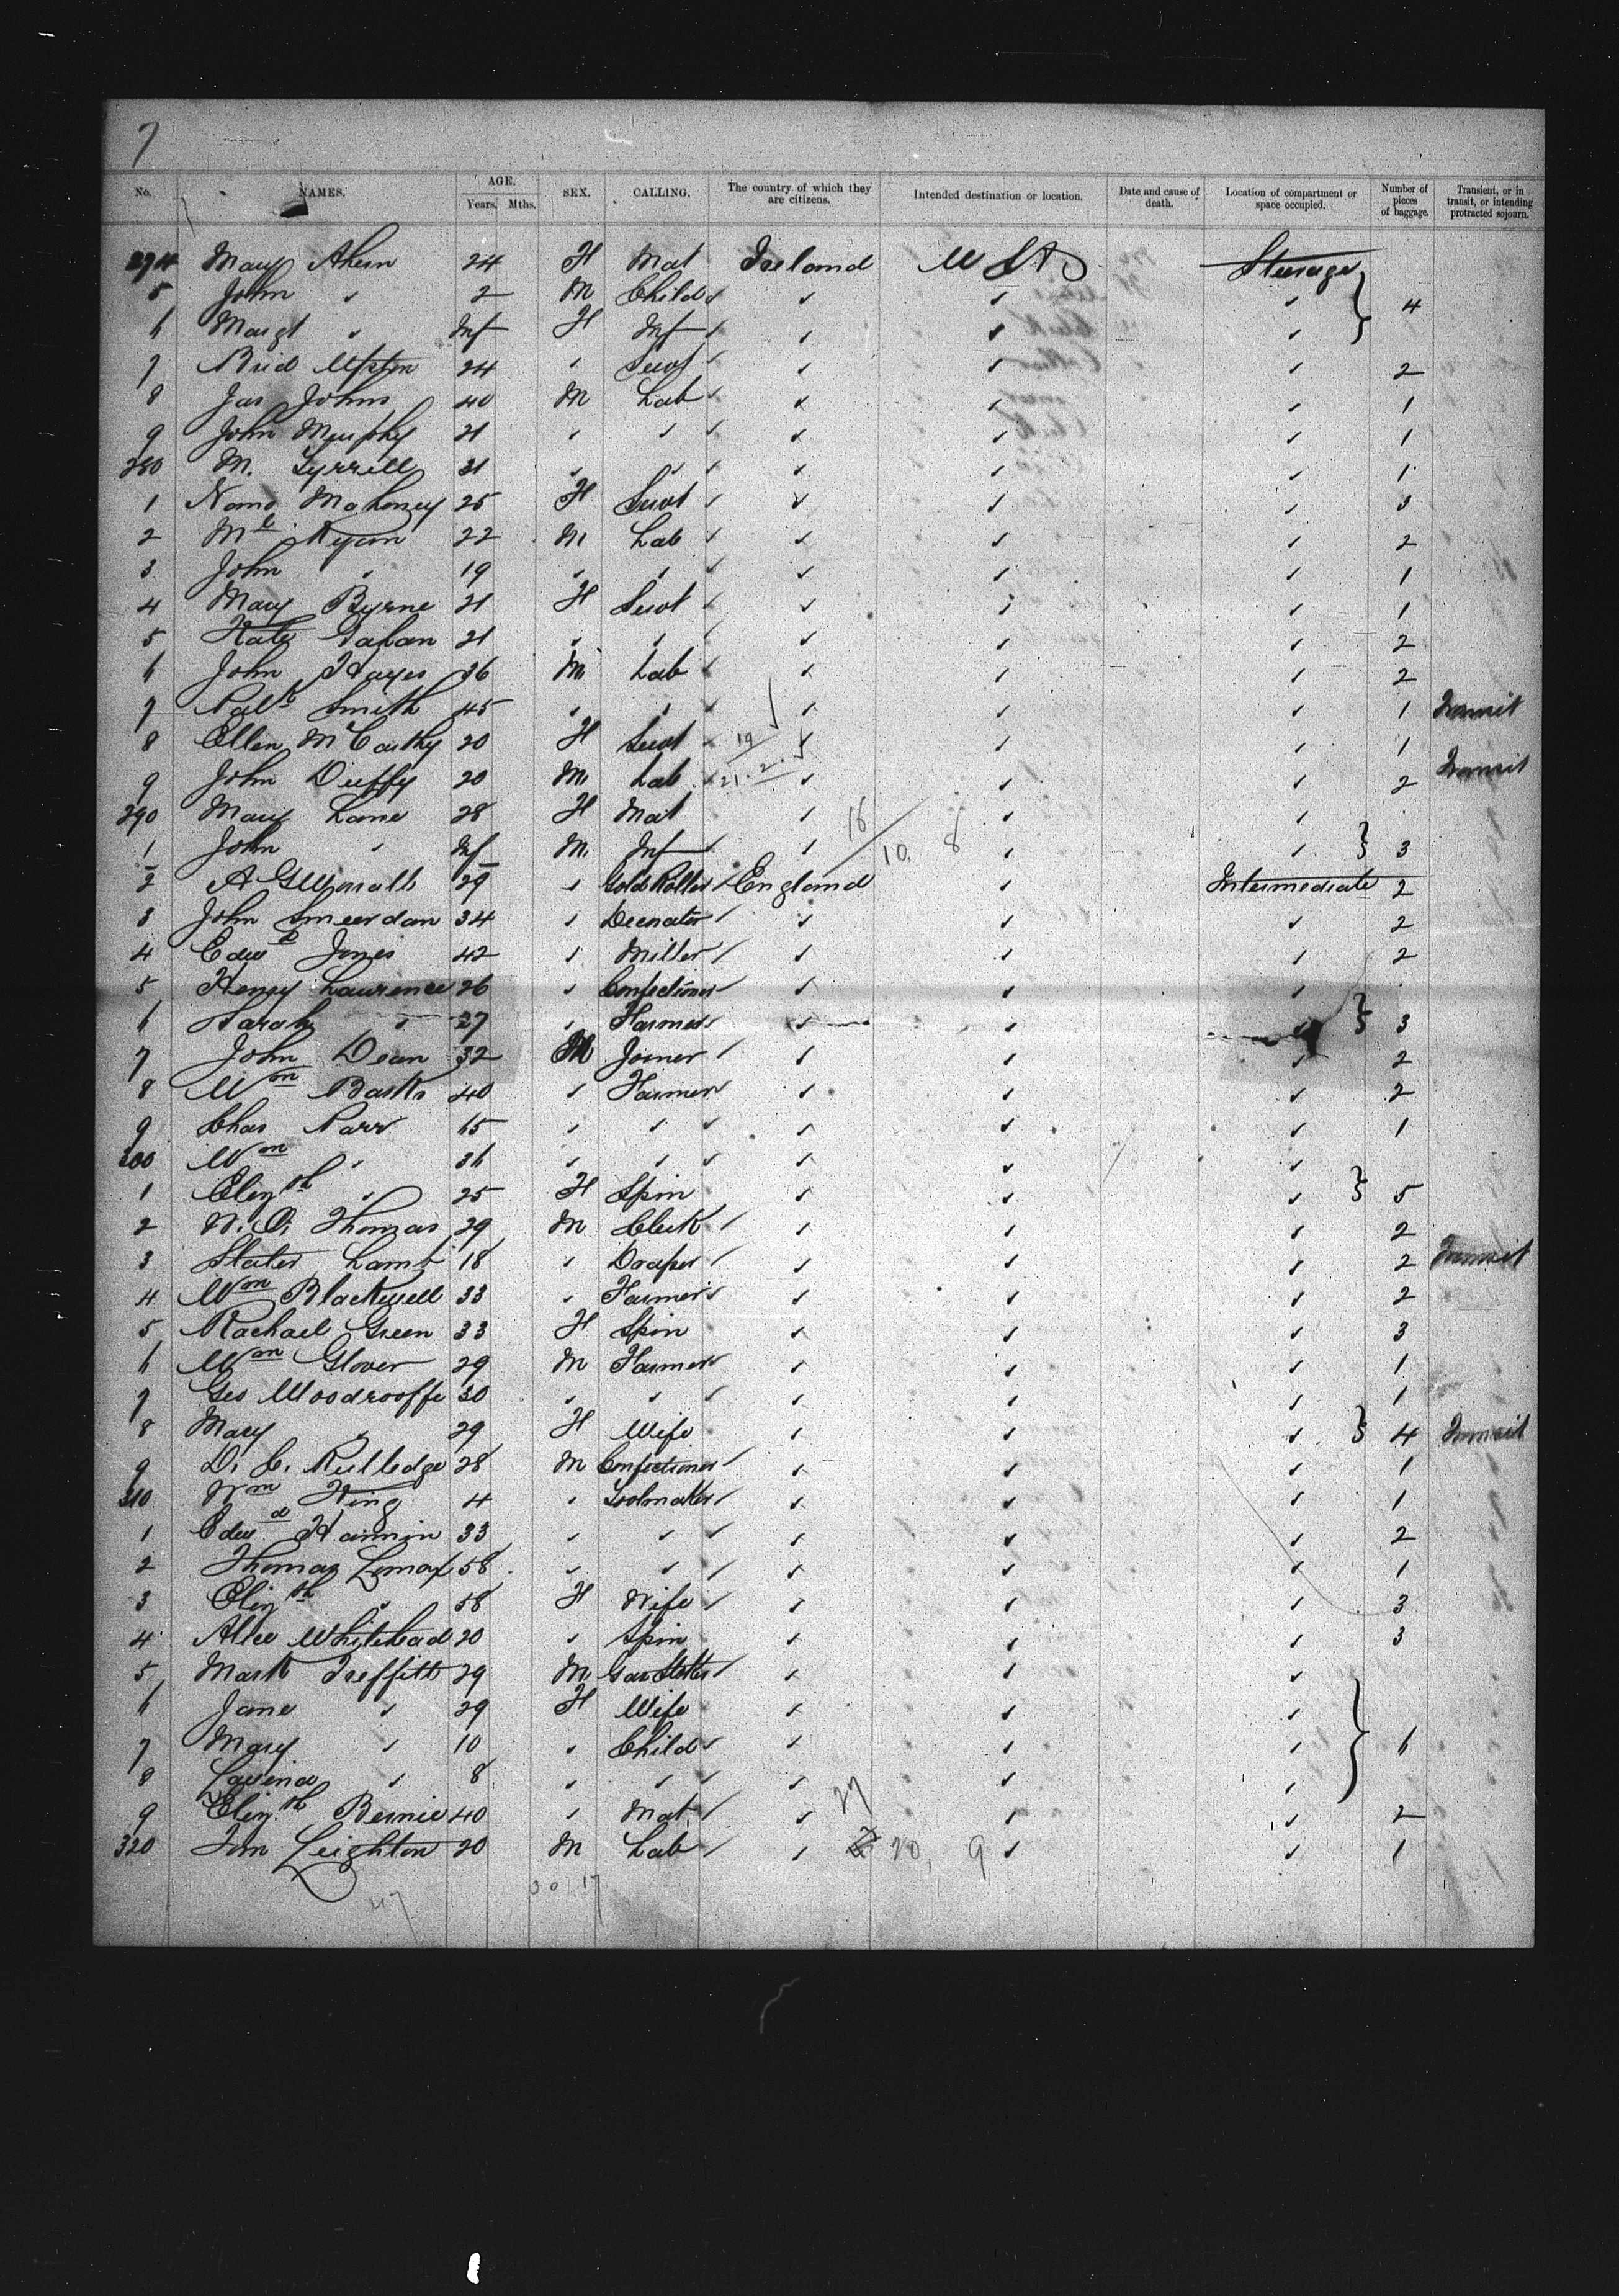 7
No. NAMES. AGE. Years. Mths. SEX. CALLING. The country of which they are citizens. Intended destination or location. Date and cause of death. Location of compartment or space occupied. Number of pieces of baggage. Transient, or in transit, or intending protracted sojourn.
274 Mary Ahern 24 F Mat Ireland U S A Steerage
5 John " 2 M Child " " " 4
6 Margt " Inf F Inf " " "
7 Brid Upton 24 " Servt " " " 2
8 Jas Johns 40 M Lab " " " 1
9 John Murphy 21 " " " " " 1
280 M. Tyrrell 31 " " " " " 1
1 Nano Mahoney 25 F Servt " " " 3
2 Ml Ryan 22 M Lab " " " 2
3 John " 19 " " " " " 1
4 Mary Byrne 21 F Servt " " " 1
5 Kate 21 " " " " " 2
6 John Hayes 36 M Lab " " " 2
7 Patk Smith 45 " " " " " 1 Transit
8 Ellen McCarthy 20 F Servt 19 " " " 1
9 John Duffy 20 M Lab 21.2. " " " 2 Transit
290 Mary Lane 28 F Mat " 16 " "
1 John " Inf M Inf " 10. 8 " " 3
2 A 29 " Gold Roller England " Intermediate 2
3 John Smeerdon 34 " Decorator " " " 2
4 Edwd Jones 42 " Miller " " " 2
5 Henry Laurence 26 " Confectioner " " "
6 Sarah " 27 " Farmer " " " 3
7 John Dean 32 M Joiner " " " 2
8 Wm Banks 40 " Farmer " " " 2
9 Chas Parr 65 " " " " " 1
300 Wm " 36 " " " " "
1 Elizth " 25 F Spin " " " 5
2 W. D. Thomas 29 M Clerk " " " 2
3 Slater Lamb 18 " Draper " " " 2 Transit
4 Wm Blackwell 33 " Farmer " " " 2
5 Rachael Green 33 F Spin " " " 3
6 Wm Glover 29 M Farmer " " " 1
7 Geo Woodrooffe 30 " " " " " 1
8 Mary " 29 F Wife " " " 4 Transit
9 D. C. Rutledge 28 M Confectioner " " " 1
310 Wm King 4 " Toolmaker " " " 1
1 Edwd Hannin 33 " " " " " 2
2 Thomas Lomax 58 " " " " " 1
3 Elizth " 58 F Wife " " " 3
4 Alice Whitehead 20 " Spin " " " 3
5 Mark Treffitt 29 M Gas " " "
6 Jane " 29 F Wife " " "
7 Mary " 10 " Child " " " 6
8 Lavena " 8 " " " " "
9 Elizth Bernie 40 " Mat " 27 " " 2
320 Tom Leighton 20 M Lab " 20, 9 " " 1
47 30 17